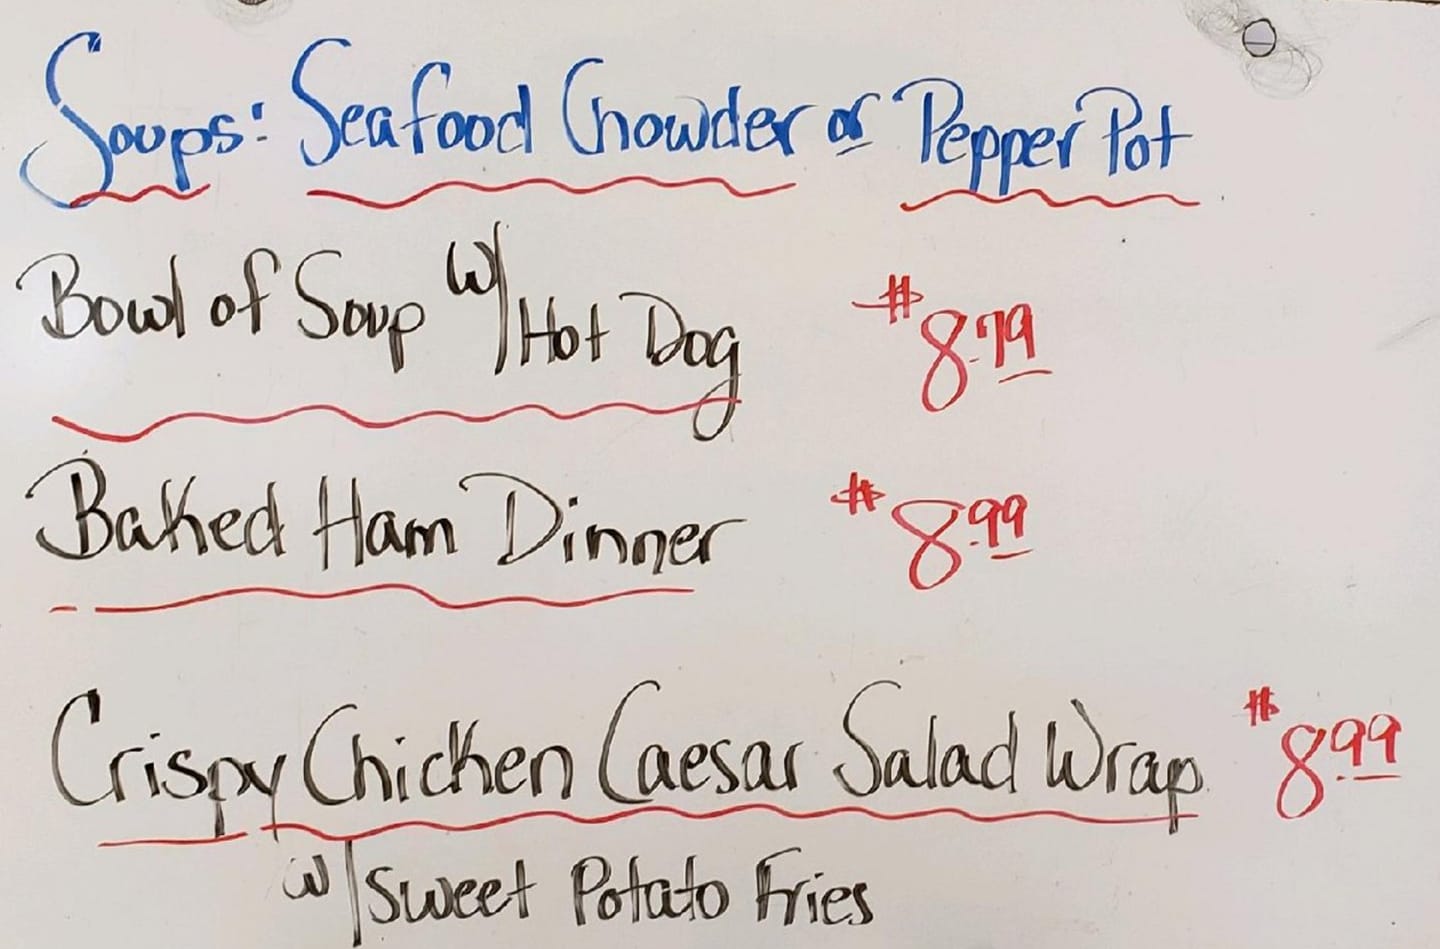 Soups: Seafood Chowder or Pepper Pot
Bowl of Soup w/ Hot Dog $8.79
Baked Ham Dinner $8.99
Crispy Chicken Caesar Salad Wrap $8.99
w/ Sweet Potato Fries